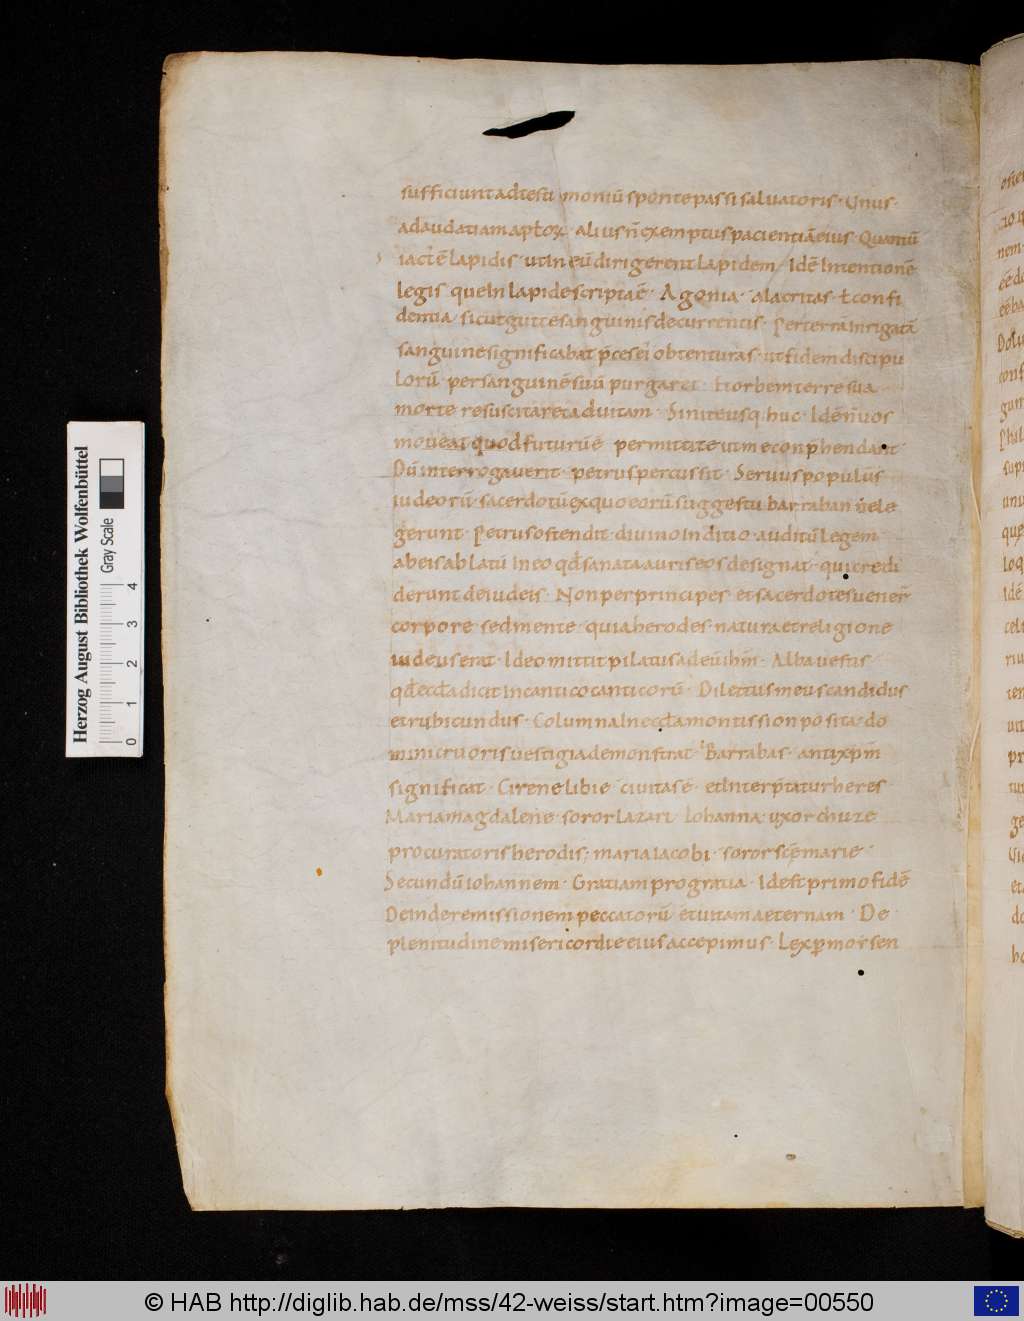 sufficiunt ad testimoniū sponte passi salvatoris · Unus
ad audatiam apłox · alius ñ exemptus pacientiā eius · Quantū
iact̄ ē lapidis · ut In eū dirigerent lapidem · Idē Intentionē
legis que In lapide scripta ē · Agonia · alacritas · ł confi
dentia · sicut guttę sanguinis decurrentis · Per terrā Inrigatā
sanguine significabat p̄ces ei obtenturas · ut fidem discipu
lorū · per sanguinē suū purgaret · Et orbem terre sua
morte resuscitaret ad vitam · Sinite usq. huc · Idē ñ vos
moveat quod futurū ē permittite ut me conp̄hendant
Dū interrogaverit · petrus percussit · Servus populus
iudeorū · sacerdotū ex quo eorū suggestu barraban ele
gerunt · Petrus ostendit · divino Inditio · auditū legem
ab eis ablatū In eo qđ sanata auris eos designat · qui credi
derunt de iudeis · Non per principes et sacerdotes uener̄
corpore sed mente · quia herodes · natura et religione
iudeus erat · Ideo mittit pilatus ad eū ihm̄ · Alba vestis
qđ eccła dicit In cantico canticorū · Dilectus meus candidus
et rubicundus · Columna In eccła montis sion posita · do
mini cruoris vestigia demonstrat · Barrabas · antixp̄m
significat · Cirene libie civitas ē · et Interp̄tatur heres
Maria magdalene · soror lazari Iohanna · uxor chuze
procuratoris herodis; maria iacobi · soror scę marie
Secundū iohannem · Gratiam pro gratia · Id est primo fidē
Deinde remissionem peccatorū et vitam aeternam · De
plenitudine misericordie eius accepimus · Lex p̄ morsen
Herzog August Bibliothek Wolfenbüttel
Gray Scale
0 1 2 3 4
© HAB http://diglib.hab.de/mss/42-weiss/start.htm?image=00550